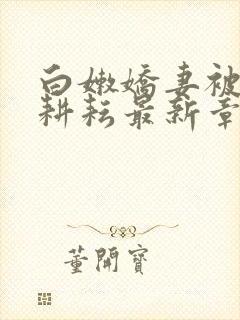 白嫩嬌妻被
耕耘最新章
董開寶